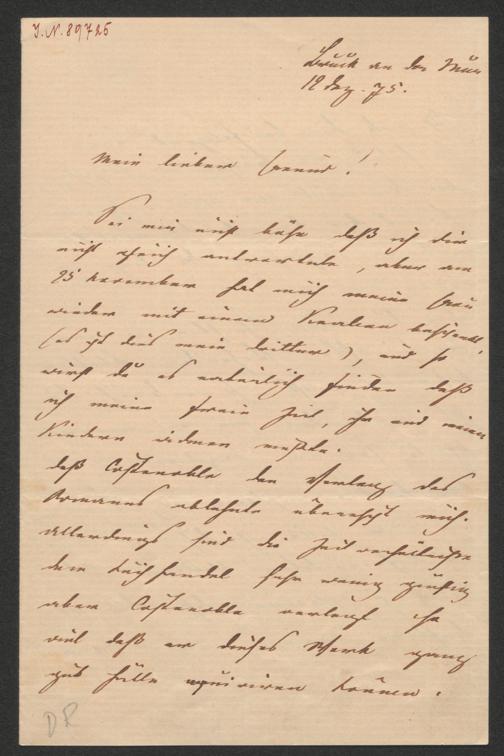 I.N. 89725
Bruck an der Mur
12 Dez. 75.
Mein lieber Freund!
Sei mir nicht böse daß ich dir
nicht gleich antwortete, aber am
25 November hat mich meine Frau
wieder mit einem Knaben beschenkt,
(es ist dies mein dritter), und so
wirst du es natürlich finden daß
ich meine freie Zeit, ihr und meinen
Kindern widmen mußte.
Daß Costenoble den Verlag des
Romanes ablehnte überrascht mich.
Allerdings sind die Zeitverhältnisse
dem Buchhandel sehr wenig günstig
aber Costenoble verlegt so
viel daß er dieses Werk ganz
gut hätte acquiriren können.
DR